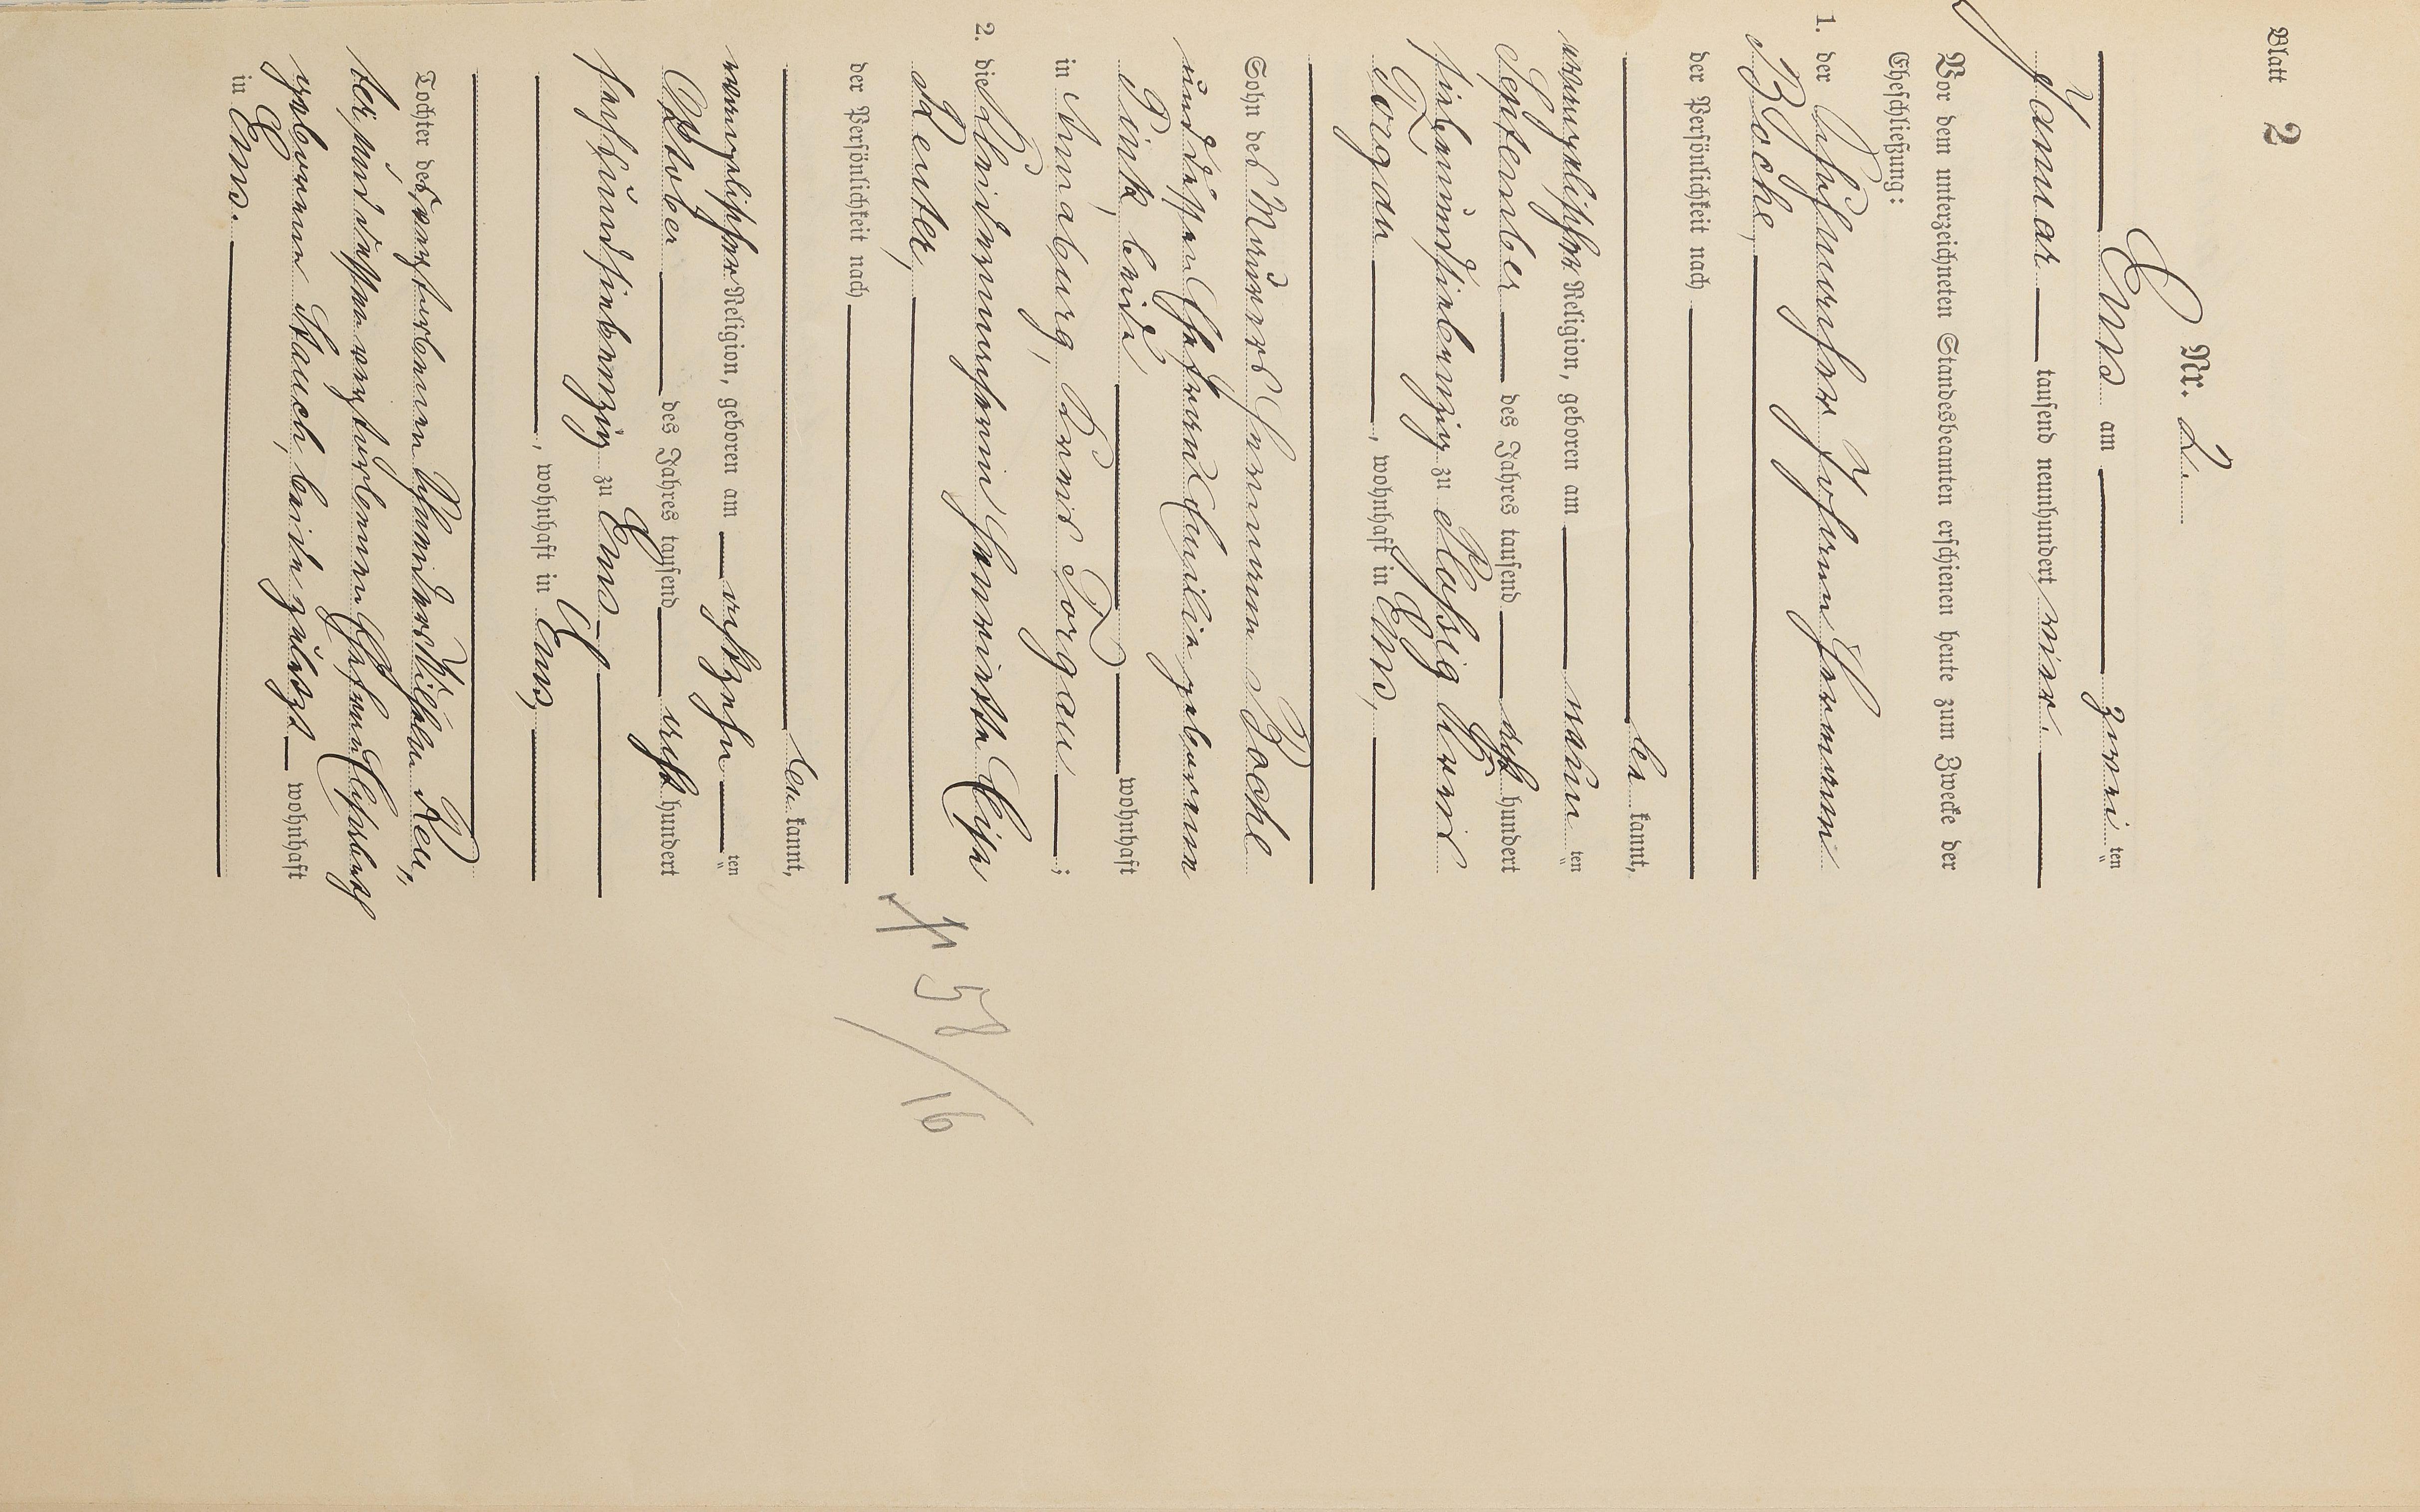 Blatt 2
Nr. 2.
Ems am zwei ten
Januar tausend neunhundert vier.
Vor dem unterzeichneten Standesbeamten erschienen heute zum Zwecke der
Eheschließung:
1. der Johann Hermann
Boche,
der Persönlichkeit nach
be kannt,
evangelischer Religion, geboren am neun ten
September des Jahres tausend acht hundert
siebenundsiebenzig zu Klossig Kreis
Torgau, wohnhaft in Ems,
Sohn des Maurers Hermann Boche
und dessen Ehefrau Cecilie geborenen
Pönk, beide wohnhaft
in Annaburg, Kreis Torgau;
2. die Kleidermacherin Henriette Elise
Reuter,
der Persönlichkeit nach
be kannt,
evangelischer Religion, geboren am achtzehn ten
Oktober des Jahres tausend acht hundert
sechsundsiebenzig zu Ems
, wohnhaft in Ems,
Tochter des verstorbenen Wilhelm Reu-
ter und dessen verstorbenen Ehefrau Elisabeth
geborenen Stauch, beide zuletzt wohnhaft
in Ems.
58/16